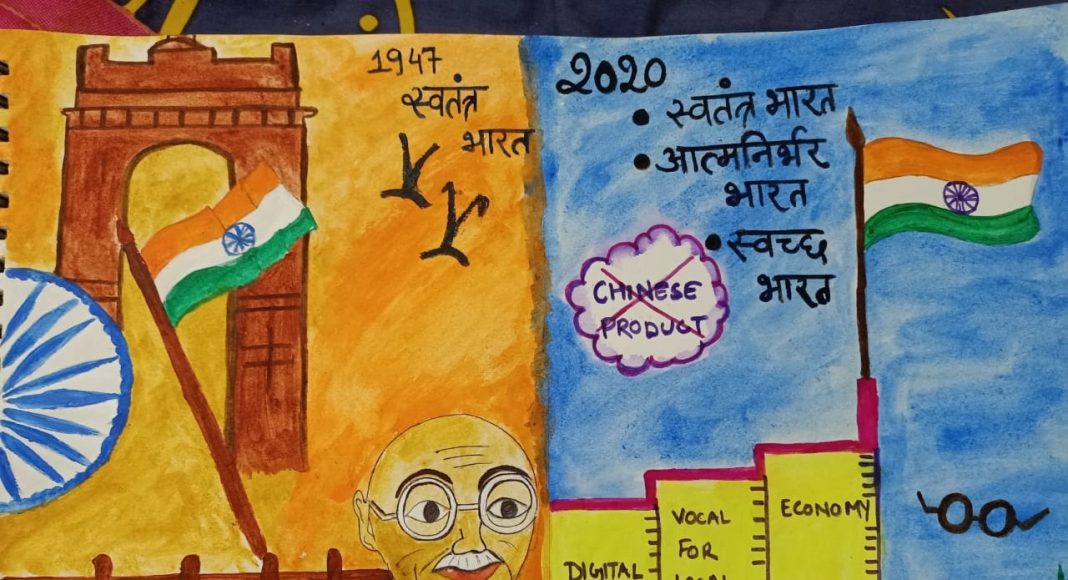 1947
स्वतंत्र
भारत
2020
• स्वतंत्र भारत
• आत्मनिर्भर
भारत
• स्वच्छ
भारत
CHINESE
PRODUCT
DIGITAL
VOCAL
FOR
ECONOMY